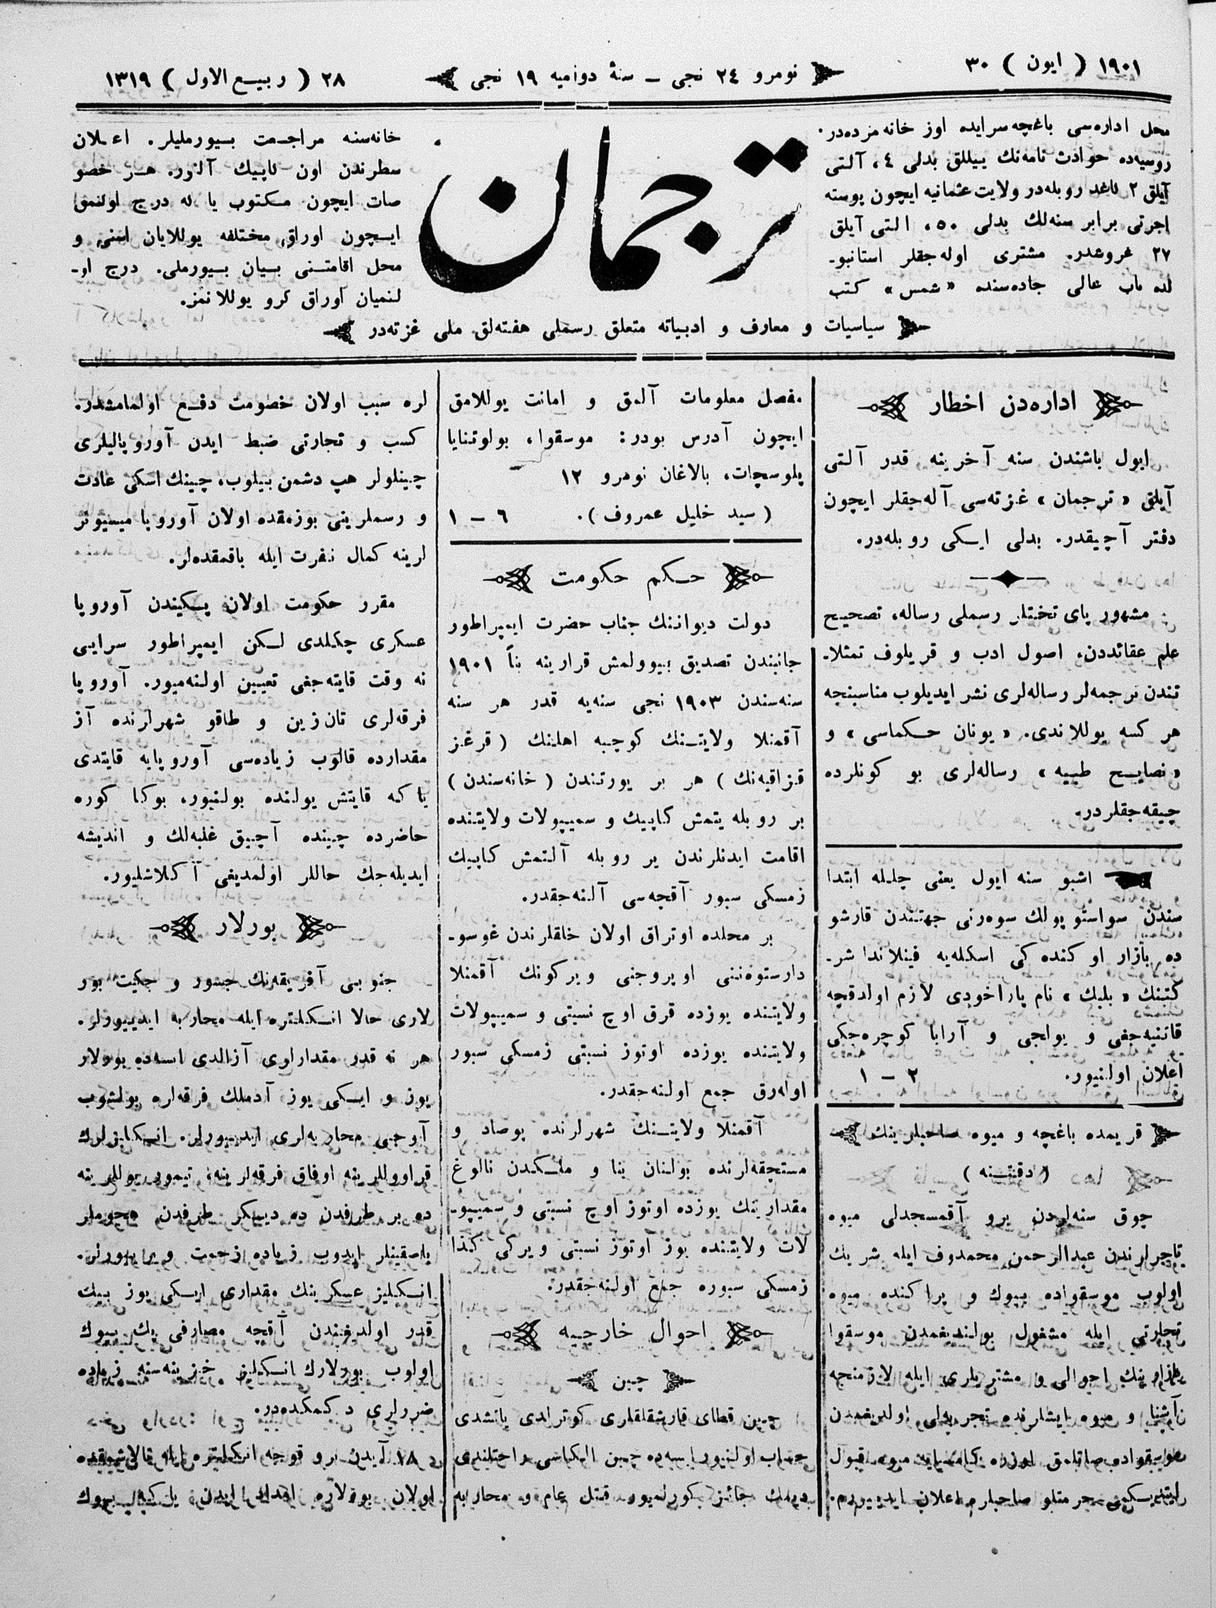 ١٩٠١ ( ايون ) ٣٠
نومرو ٢٤ نجى – سنهٔ دواميه ١٩ نجى
٢٨ ( ربيع الاول ) ١٣١٩
محل اداره‌سى باغچه‌سرايده اوز خانه‌مزده‌در.
روسيه‌ده حوادث نامه‌نك ييللق بدلى ٤، آلتى
آيلق ٢ كاغد روبله‌در ولايت عثمانيه ايچون پوسته
اجرتى برابر سنه‌لك بدلى ٥٠، التى آيلق
٢٧ غروشدر. مشترى اوله‌جقلر استانبو-
لده باب عالى جاده‌سنده «شمس» كتب
ترجمان
خانه‌سنه مراجعت بيورمليلر. اعلان
سطرندن اون كاپيك آلنور. هر خصو
صات ايچون مكتوب يا كه درج اولنمق
ايچون اوراق مختلفه يوللايان اسمى و
محل اقامتنى بيان بيورملى. درج او-
لنميان اوراق كرو يوللانمز.
سياسيات و معارف و ادبياته متعلق رسملى هفته‌لق ملى غزته‌در
اداره‌دن اخطار
ايول باشندن سنه آخرينه قدر آلتى
آيلق «ترجمان» غزته‌سى آله‌جقلر ايچون
دفتر آچيقدر. بدلى ايكى روبله‌در.
مشهور پاى تختلر رسملى رساله، تصحيح
علم عقائددن، اصول ادب و قريلوف تمثلا-
تندن ترجمه‌لر رساله‌لرى نشر ايديلوب مناسبنجه
هر كسه يوللاندى. «يونان حكماسى» و
«نصايح طبيه» رساله‌لرى بو كونلرده
چيقه‌جقلردر.
اشبو سنه ايول يعنى چلله ابتدا
سندن سواستوپولك سوه‌رنى جهتندن قارشو
ده بازار اوكنده‌كى اسكله‌يه فينلاندا شر-
كتنك «بليك» نام پاراخودى لازم اولدقچه
قاتنيه‌جغى و يولجى و آرابا كوچره‌جكى
اعلان اولنيور. ٢ – ١
قريمده باغچه و ميوه صاحبلرينك
( دقتنه )
چوق سنه‌لردن برو آقمسجدلى ميوه
تاجرلرندن عبدالرحمن محمدوف ايله شريك
اولوب موسقواده بيوك و پراكنده ميوه
تجارتى ايله مشغول بولنديغمدن موسقوا
بازارينك احوالى و مشتريلرى ايله لازمنجه
آشنا و ميوه ايشلرنده تجربه‌لى اولديغمدن
موسقواده صاتلمق اوزره كاميسيه ميوه قبول
ايتديكمى حرمتلو صاحبلره اعلان ايدييورم.
مفصل معلومات آلمق و امانت يوللامق
ايچون آدرس بودر: موسقوا، بولوتنايا
پلوسچات، بالاغان نومرو ١٢
( سيد خليل عمروف ). ٦ – ١
حكم حكومت
دولت ديواننك جناب حضرت ايمپراطور
جانبندن تصديق بييورلمش قرارينه بناً ١٩٠١
سنه‌سندن ١٩٠٣ نجى سنه‌يه قدر هر سنه
آقمنلا ولايتنك كوچبه اهلنك ( قرغز
قزاقيه‌نك ) هر بر يورتندن ( خانه‌سندن )
بر روبله يتمش كاپيك و سميپولات ولايتنده
اقامت ايدنلرندن بر روبله آلتمش كاپيك
زمسكى سبور آقچه‌سى آلنه‌جقدر.
بر محلده اوتراق اولان خلقلرندن غوسو-
دارستوه‌ننى اوپروچنى ويركونك آقمنلا
ولايتنده يوزده قرق اوچ نسبتى و سميپولات
ولايتنده يوزده اوتوز نسبتى زمسكى سبور
اوله‌رق جمع اولنه‌جقدر.
آقمنلا ولايتنك شهرلرنده پوصاد و
مستچقه‌لرنده بولنان بنا و ملكدن نالوغ
مقدارينك يوزده اوتوز اوچ نسبتى و سميپو-
لات ولايتنده يوز اوتوز نسبتى ويركى كذا
زمسكى سبوره جمع اولنه‌جقدر.
احوال خارجيه
چين
چين قطاى قارشقلقلرى كوترلدى يانشدى
حساب اولنيور ايسه‌ده چين
ديمك جائز كورلميور قتل عام و محاربه
لره سبب اولان خصومت دفع اولمامشدر.
كسب و تجارتى ضبط ايدن آوروپاليلرى
چينلولر هپ دشمن بيلوب، چينك اسكى عادت
و رسملرينى بوزمقده اولان آوروپا ميسيونر
لرينه كمال نفرت ايله باقمقده‌لر.
مقرر حكومت اولان پكيندن آوروپا
عسكرى چكلدى لكن ايمپراطور سرايى
نه وقت قايته‌جغى تعيين اولنه‌ميور. آوروپا
فرقه‌لرى تان‌زين و طاقو شهرلرنده آز
مقدارده قالوب زياده‌سى آوروپايه قايتدى
يا كه قايتش يولنده بولنيور، بوكا كوره
حاضرده چينده آچيق غلبه‌لك و انديشه
ايديله‌جك حاللر اولمديغى آكلاشليور.
بورلار
جنوبى آفريقه‌نك جسور و جكيت بور
لارى حالا انكليتره ايله محاربه ايدييورلر.
هر نه قدر مقدارلرى آزالدى ايسه‌ده بورلار
يوز و ايكى يوز آدملك فرقه‌لره بولشوب
آوجى محاربه‌لرى ايدييورلر. انكليزلرك
قراوللرينه اوفاق فرقه‌لرينه، تيمور يوللرينه
ده بر طرفدن ده ديكر طرفدن هجوملر
باسقينلر ايدوب زياده زحمت ويرييورلر.
انكليز عسكرينك مقدارى ايكى يوز بيك
قدر اولديغندن آقچه مصارفى پك بيوك
اولوب بورلارك انكليز خزينه‌سنه زياده
ضررلرى دكمكده‌در.
١٨ آيدن برو قوجه انكليتره ايله قالاشمقده
اولان بورلاره امداد ايدن يا كه بيوك